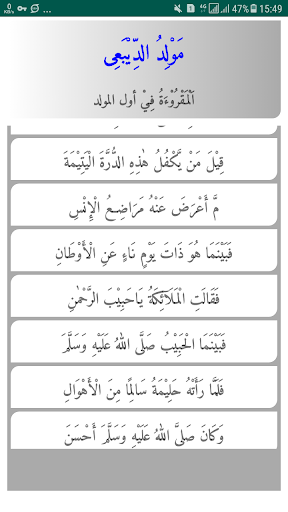 0 KB/s 4G 47% 15:49
مَوْلِدُ الدِّيْبَعِى
اَلْمَقْرُوْءَةُ فِيْ أول المولد
قِيْلَ مَنْ يَّكْفُلُ هٰذِهِ الدُّرَّةَ الْيَتِيْمَةَ
مَّ أَعْرَضَ عَنْهُ مَرَاضِعُ الْإِنْسِ
فَبَيْنَمَا هُوَ ذَاتَ يَوْمٍ نَاءٍ عَنِ الْأَوْطَانِ
فَقَالَتِ الْمَلَآئِكَةُ يَاحَبِيْبَ الرَّحْمٰنِ
فَبَيْنَمَا الْحَبِيْبُ صَلَّى اللهُ عَلَيْهِ وَسَلَّمَ
فَلَمَّا رَأَتْهُ حَلِيْمَةُ سَالِمًا مِنَ الْأَهْوَالِ
وَكَانَ صَلَّى اللهُ عَلَيْهِ وَسَلَّمَ أَحْسَنَ